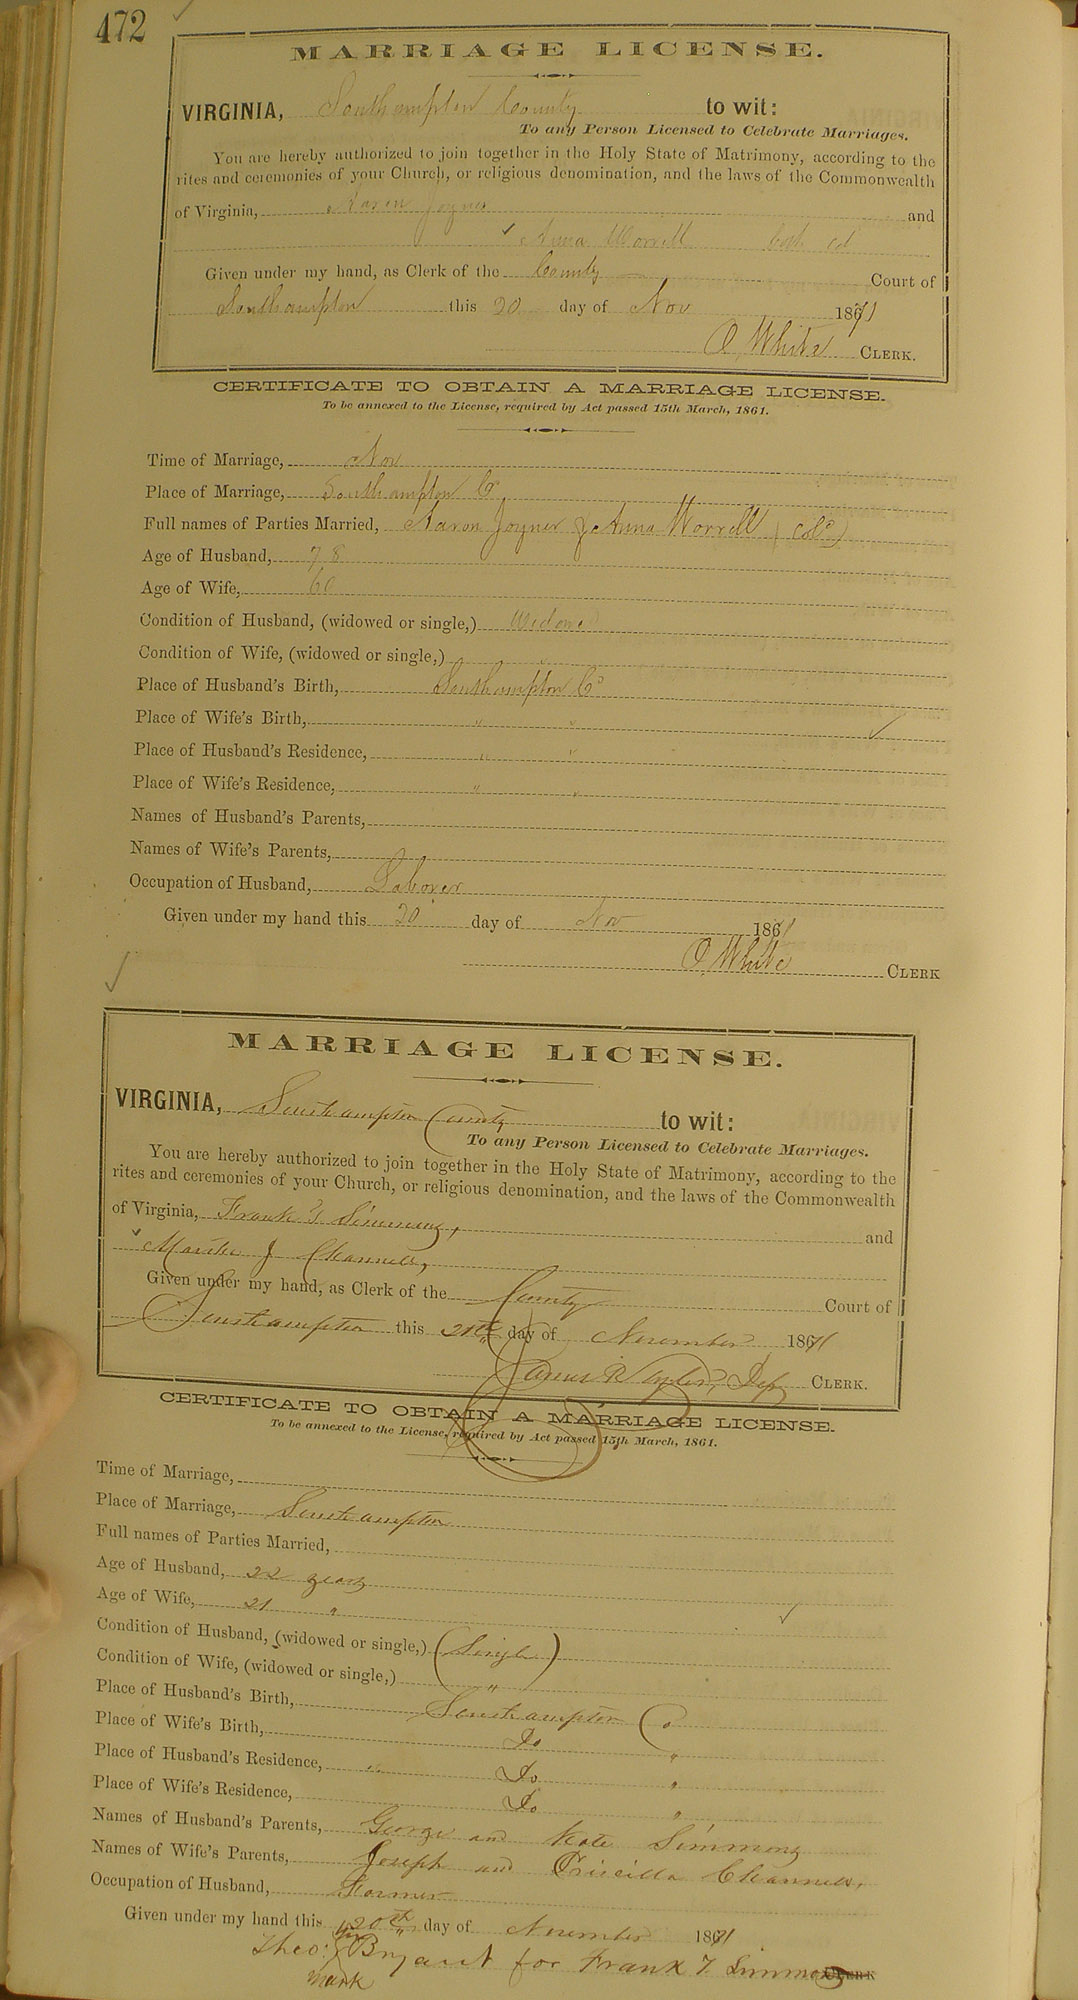 472
MARRIAGE LICENSE.
VIRGINIA, Southampton County to wit:
To any Person Licensed to Celebrate Marriages.
You are hereby authorized to join together in the Holy State of Matrimony, according to the
rites and ceremonies of your Church, or religious denomination, and the laws of the Commonwealth
of Virginia, Aaron Joyner and
Anna Worrell both cd
Given under my hand, as Clerk of the County Court of
Southampton this 20 day of Nov 1871
O. White CLERK.
CERTIFICATE TO OBTAIN A MARRIAGE LICENSE.
To be annexed to the License, required by Act passed 15th March, 1861.
Time of Marriage, Nov
Place of Marriage, Southampton Co
Full names of Parties Married, Aaron Joyner & Anna Worrell (Cold)
Age of Husband, 78
Age of Wife, 60
Condition of Husband, (widowed or single,) Widowed
Condition of Wife, (widowed or single,)
Place of Husband's Birth, Southampton Co
Place of Wife's Birth, " "
Place of Husband's Residence, " "
Place of Wife's Residence, " "
Names of Husband's Parents,
Names of Wife's Parents,
Occupation of Husband, Laborer
Given under my hand this 20 day of Nov 1871
O White CLERK
MARRIAGE LICENSE.
VIRGINIA, Southampton County to wit:
To any Person Licensed to Celebrate Marriages.
You are hereby authorized to join together in the Holy State of Matrimony, according to the
rites and ceremonies of your Church, or religious denomination, and the laws of the Commonwealth
of Virginia, Frank T Simmons, and
J Channels,
Given under my hand, as Clerk of the County Court of
Southampton this day of November 1871
James R Dep CLERK.
CERTIFICATE TO OBTAIN A MARRIAGE LICENSE.
To be annexed to the License, required by Act passed 15th March, 1861.
Time of Marriage,
Place of Marriage, Southampton
Full names of Parties Married,
Age of Husband, 22 years
Age of Wife, 21 "
Condition of Husband, (widowed or single,) (Single)
Condition of Wife, (widowed or single,) "
Place of Husband's Birth, Southampton Co
Place of Wife's Birth, Do "
Place of Husband's Residence, " Do "
Place of Wife's Residence, Do "
Names of Husband's Parents, George and Kate Simmons
Names of Wife's Parents, Joseph and Priscilla Channels,
Occupation of Husband, Farmer
Given under my hand this 20th day of November 1871
his
Theo: Bryant for Frank T Simmons CLERK
mark